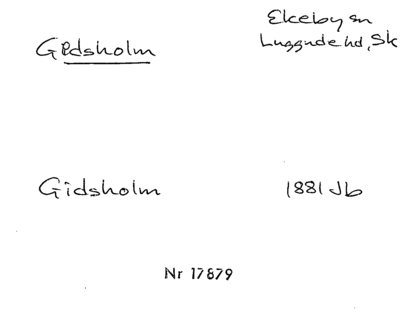 Gedsholm
Ekeby sn
Luggude hd, Sk
Gidsholm
1881 Jb
Nr 17879